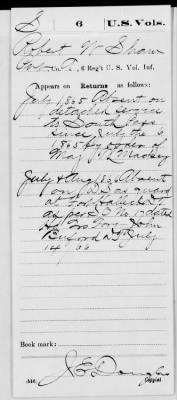 S 6 U.S. Vols.
Robert W Shaw
Co. , 6 Reg't U. S. Vol. Inf.
Appears on Returns as follows:
July 1865 Absent on
detached service
South Pass
since July the 6
1865 by order of
Maj Mackey
July & Aug 186 Absent
on DS as guard
at Fort Halleck
as per S O No 17 dated
Hd
Buford D T July
14 66
Book mark:
J E Douglas
(546) Copyist.